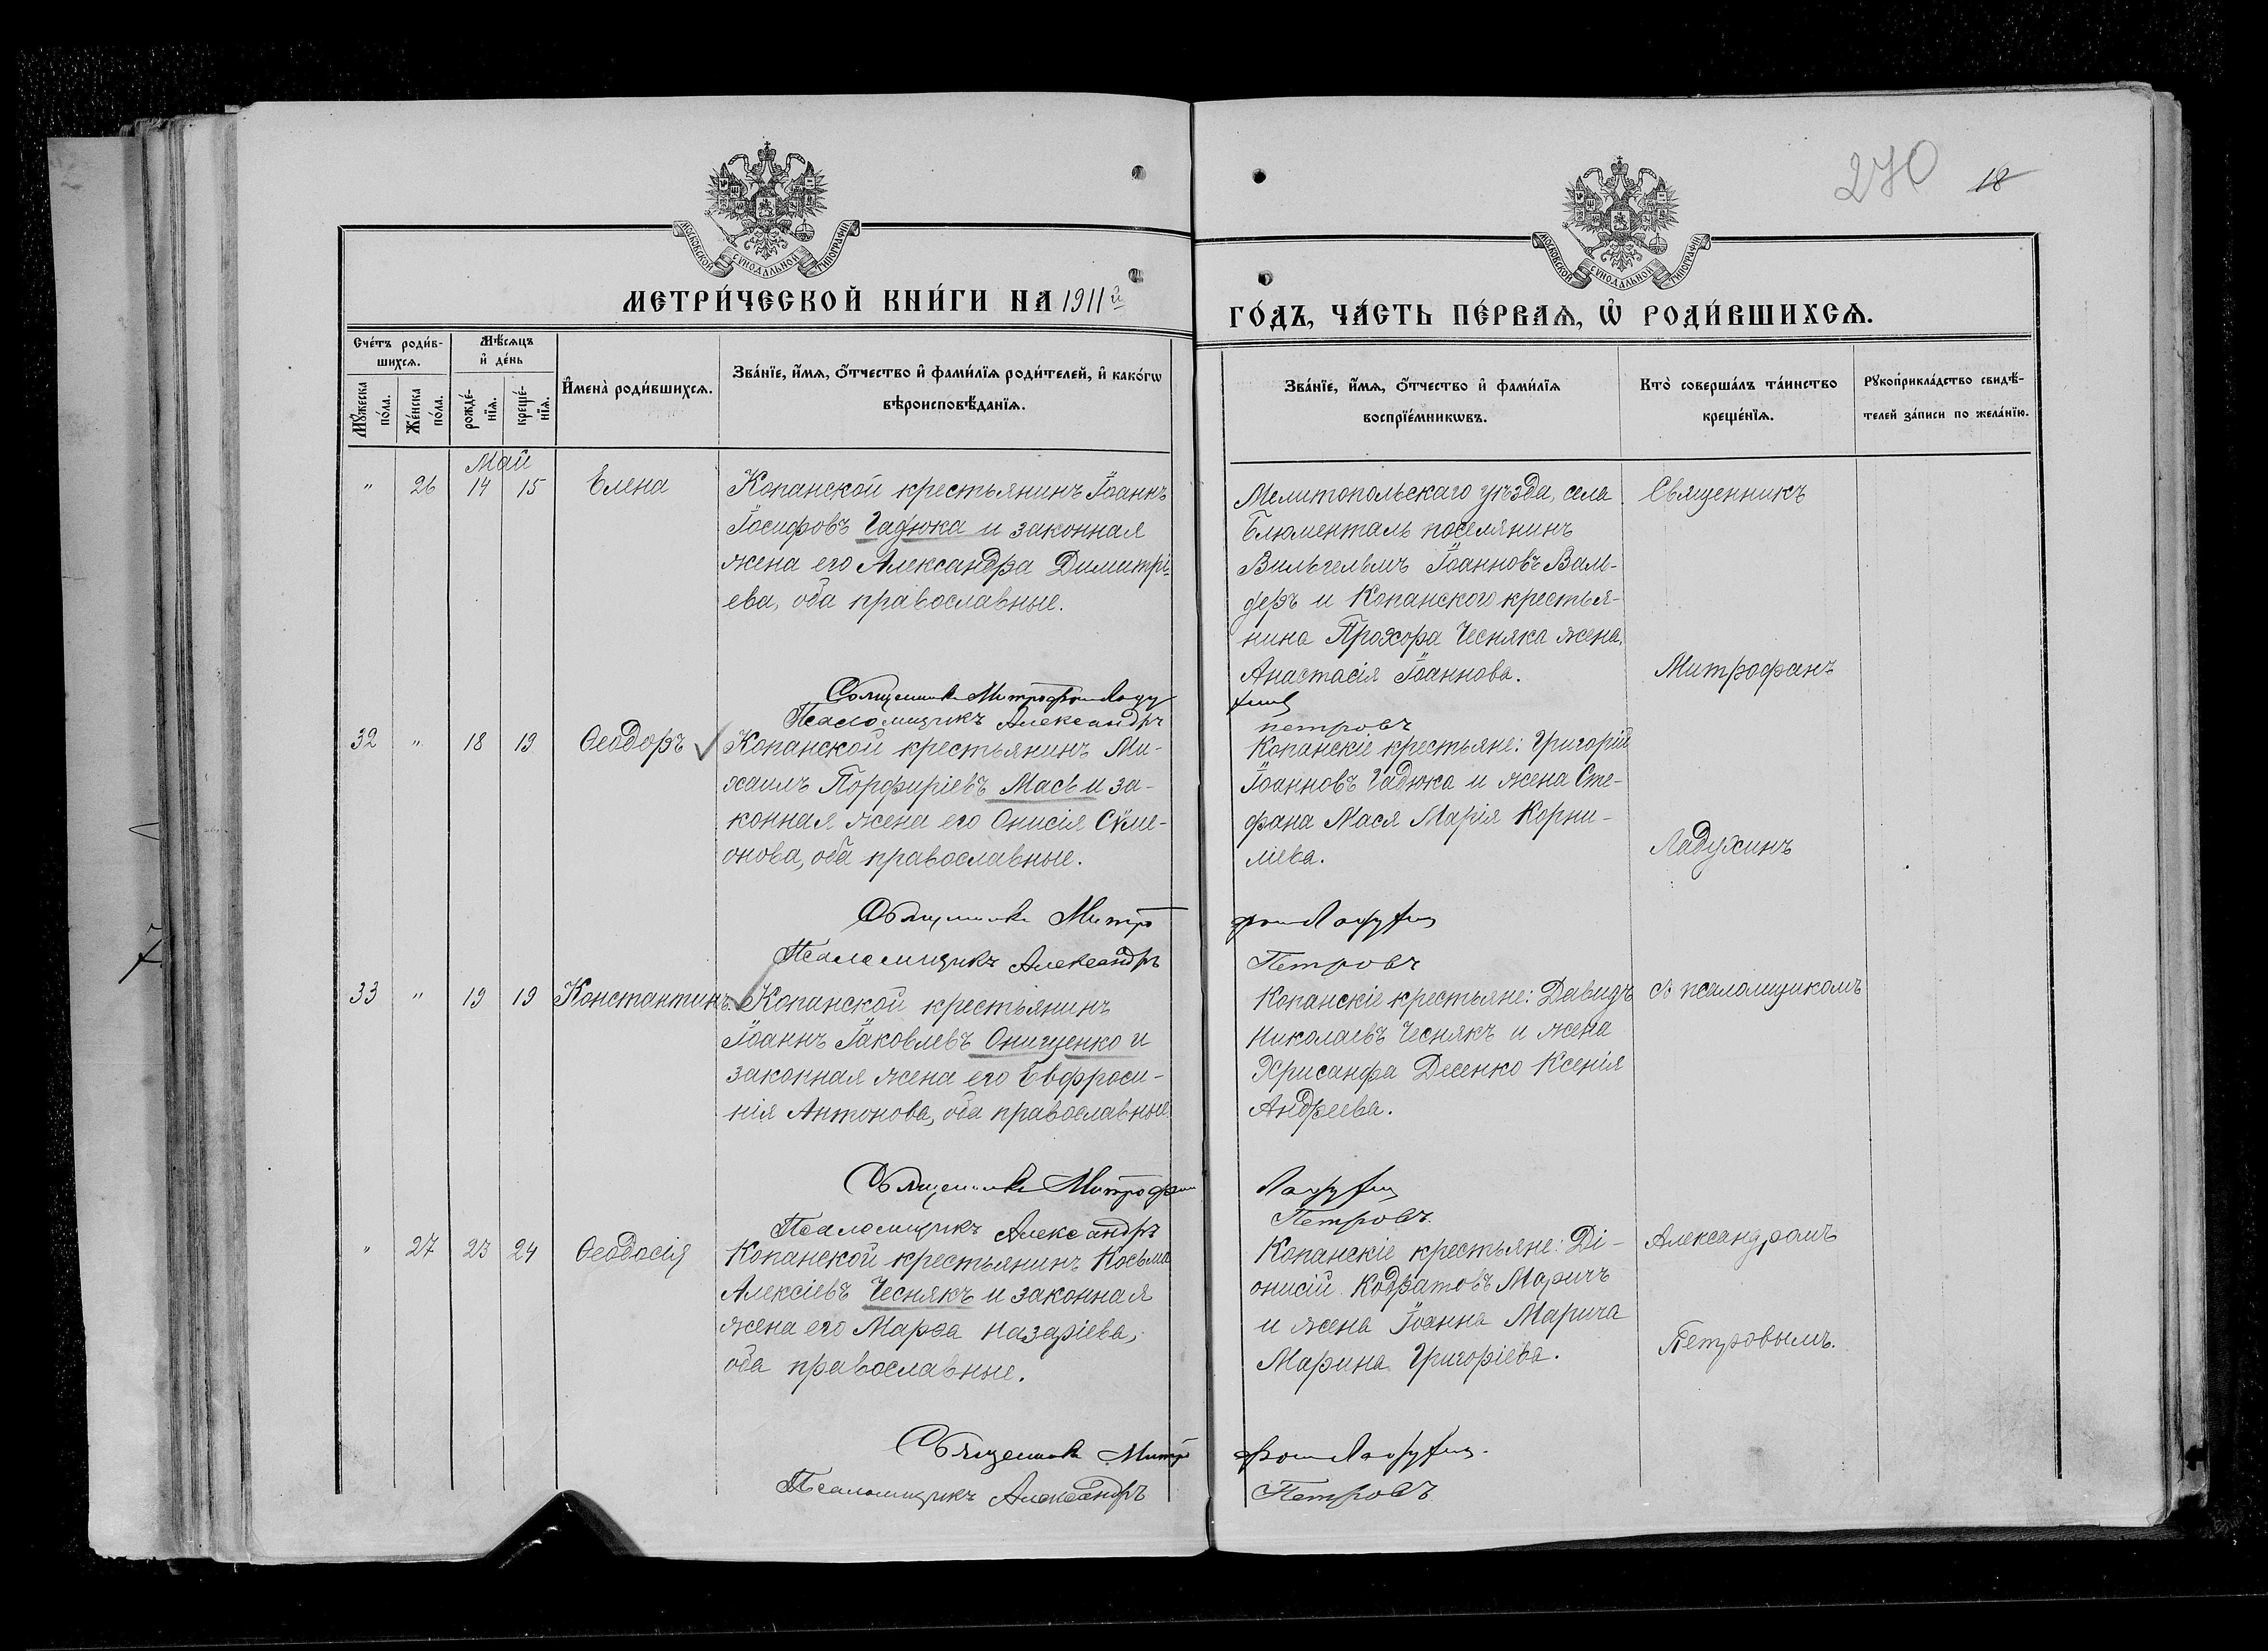 270 18
МОСКОВСКОЙ СѴНОДАЛЬНОЙ ТИПОГРАФІИ
МОСКОВСКОЙ СѴНОДАЛЬНОЙ ТИПОГРАФІИ
МЕТРИ́ЧЕСКОЙ КНИ́ГИ НА 1911й
ГО́ДЪ, ЧА́СТЬ ПЕ́РВАѦ, Ѡ҆ РОДИ́ВШИХСѦ.
Сче́тъ роди́в-
шихсѧ.
Мꙋ́жеска
по́ла.
Же́нска
по́ла.
Мѣ́сѧцъ
и҆ де́нь
рожде́-
нїѧ.
креще́-
нїѧ.
И҆́мена̀ роди́вшихсѧ.
Зва́нїе, и҆́мѧ, ѻ҆́тчество и҆ фами́лїѧ роди́телей, и҆ како́гѡ
вѣроисповѣ́данїѧ.
Зва́нїе, и҆́мѧ, ѻ҆́тчество и҆ фами́лїѧ
воспрїе́мникѡвъ.
Кто̀ соверша́лъ та́инство
креще́нїѧ.
Рꙋкоприкла́дство свидѣ́-
телей за́писи по жела́нїю.
Май
" 26 14 15 Елена
Копанской крестьянинъ Іоаннъ
Іосифовъ Гадюка и законная
жена его Александра Димитрі-
ева, оба православные.
Мелитопольскаго уѣзда, села
Блюменталь поселянинъ
Вильгельмъ Іоанновъ Валь-
деръ и Копанского крестья-
нина Прохора Чесняка жена,
Анастасія Іоаннова.
Священникъ
Митрофанъ
Священникъ Митрофанъ Ладу
хинъ
Псаломщикъ Александръ
Петровъ
32 " 18 19 Ѳеодоръ
Копанской крестьянинъ Ми-
хаилъ Порфиріевъ Мась и за-
конная жена его Онисія Сѵме-
онова, оба православные.
Копанскіе крестьяне: Григорій
Іоанновъ Гадюка и жена Сте-
фана Мася Марія Корни-
ліева.
Ладухинъ
Священникъ Митро
фанъ Ладухинъ
Псаломщикъ Александръ
Петровъ
33 " 19 19 Константинъ.
Копанской крестьянинъ
Іоаннъ Іаковлевъ Онищенко и
законная жена его Евфроси-
нія Антонова, оба православные
Копанскіе крестьяне: Давидъ
Николаевъ Чеснякъ и жена
Хрисанфа Десенко Ксенія
Андреева.
съ псаломщикомъ
Священникъ Митрофанъ
Ладухинъ
Псаломщикъ Александръ
Петровъ.
" 27 23 24 Ѳеодосія
Копанской крестьянинъ Косьма
Алексіевъ Чеснякъ и законная
жена его Марѳа Назаріева,
оба православные.
Копанскіе крестьяне: Ді-
онисій Кодратовъ Маричъ
и жена Іоанна Марича
Марина Григоріева.
Александромъ
Петровымъ.
Священникъ Митро
фанъ Ладухинъ.
Псаломщикъ Александръ
Петровъ